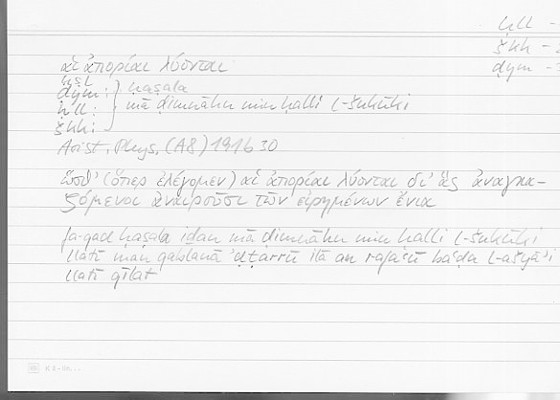 ḥll –
škk –
ḍmn –
αἱ ἀπορίαι λύονται
ḥṣl
ḍmn: ḥaṣala
ḥll: mā ḍimnāhu min ḥalli l-šukūki
škk:
Arist. Phys. (A8) 191b30
ὥσθ' (ὅπερ ἐλέγομεν) αἱ ἀπορίαι λύονται δι' ἃς ἀναγκα-
ζόμενοι ἀναιροῦσι τῶν εἰρημένων ἔνια
fa-qad ḥaṣala iḏan mā ḍimnāhu min ḥalli l-šukūki
llatī man qablanā 'ḍṭarrū ilā an rafaʿū baʿḍa l-ašyāʾi
llatī qīlat